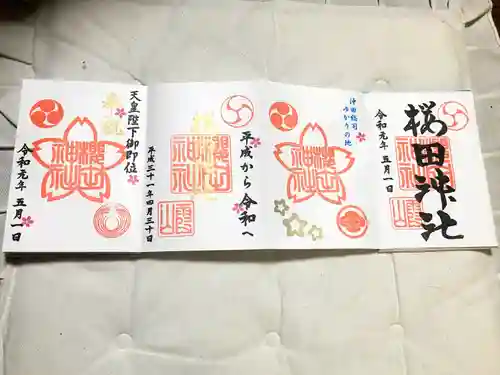 櫻田神社
令和元年 五月一日
沖田総司
ゆかりの地
櫻田
神社
平成から令和へ
櫻田
神社
平成三十一年四月三十日
天皇陛下御即位
奉祝
櫻田
神社
令和元年 五月一日